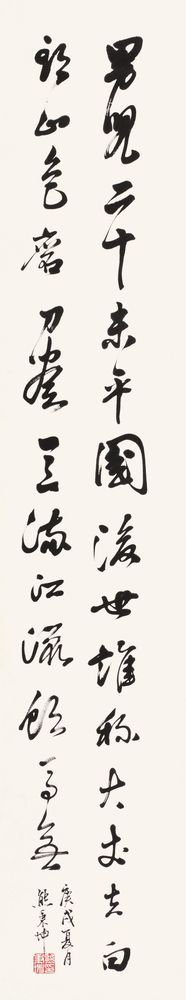 男兒二十未平國後世誰称大丈夫白
頭山色磨刀盡豆滿江飲馬無
庚戌夏月
熊秉坤